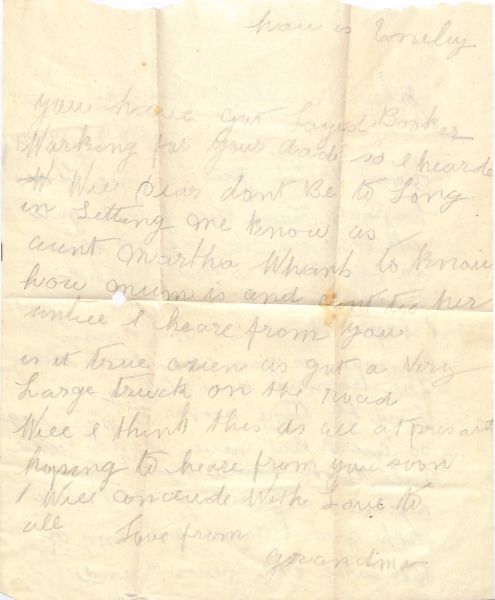 how is Emely
you have got Loyed Booker
Warking for your dade so I hearde
Will Dear dont Be to Long
in Letting me know as
aunt Martha Whants to know
how mum is and cant tell her
untill I heare from you
is it true as got a very
Large truck on the road
Will I think this is all at presant
hoping to heare from you soon
I Will conclude With Love to
all Love from
grandma